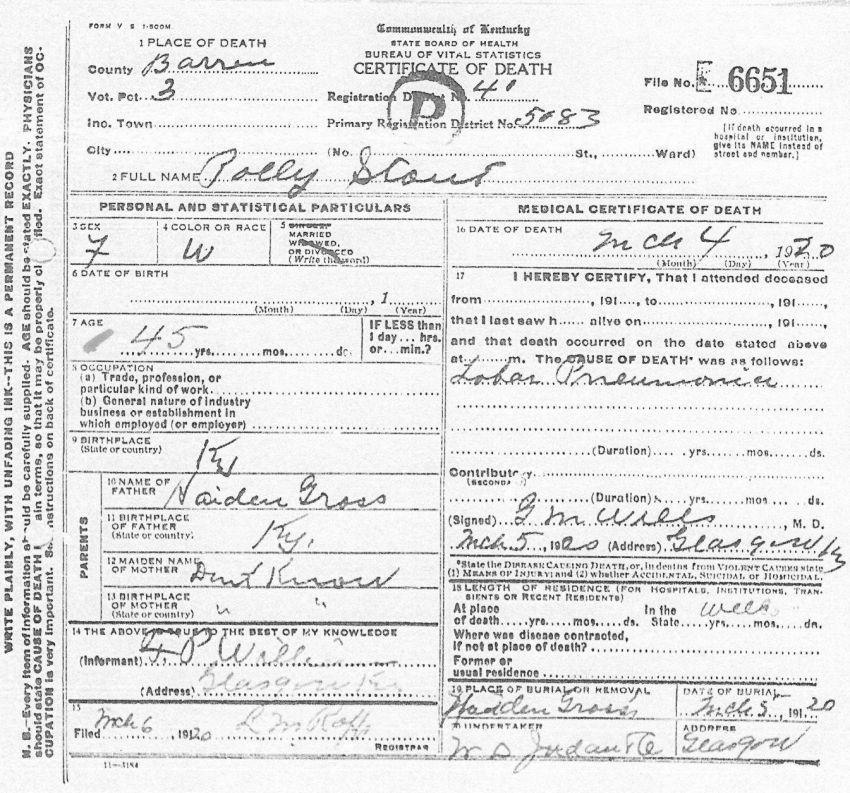 FORM V S 1-500M
Commonwealth of Kentucky
STATE BOARD OF HEALTH
BUREAU OF VITAL STATISTICS
CERTIFICATE OF DEATH
1 PLACE OF DEATH
County Barren
Vot. Pct. 3
Registration District No. 40
File No. 6651
Inc. Town
Primary Registration District No. 5083
Registered No
City (No. St., Ward)
[If death occurred in a hospital or institution, give its NAME instead of street and number.]
2 FULL NAME Polly Stout
PERSONAL AND STATISTICAL PARTICULARS
3 SEX F
4 COLOR OR RACE W
5 SINGLE, MARRIED WIDOWED, OR DIVORCED (Write the word)
6 DATE OF BIRTH
, 1
(Month) (Day) (Year)
7 AGE
45 yrs. mos. ds.
IF LESS than 1 day ... hrs. or ... min.?
8 OCCUPATION
(a) Trade, profession, or particular kind of work
(b) General nature of industry business or establishment in which employed (or employer)
9 BIRTHPLACE
(State or country) Ky
PARENTS
10 NAME OF FATHER Haiden Gross
11 BIRTHPLACE OF FATHER (State or country) Ky.
12 MAIDEN NAME OF MOTHER Dont Know
13 BIRTHPLACE OF MOTHER (State or country) " "
14 THE ABOVE IS TRUE TO THE BEST OF MY KNOWLEDGE
(Informant)
(Address) Glasgow Ky
15
Filed Mch 6 1920
REGISTRAR
11-3184
MEDICAL CERTIFICATE OF DEATH
16 DATE OF DEATH
Mch 4, 1920
(Month) (Day) (Year)
17 I HEREBY CERTIFY, That I attended deceased
from , 191 , to , 191 ,
that I last saw h alive on , 191 ,
and that death occurred on the date stated above
at m. The CAUSE OF DEATH* was as follows:
Lobar Pneumonia
(Duration) yrs. mos. ds.
Contributory
(SECONDARY)
(Duration) yrs. mos. ds.
(Signed) G M Wells, M. D.
Mch 5, 1920 (Address) Glasgow Ky
*State the DISEASE CAUSING DEATH, or, in deaths from VIOLENT CAUSES state (1) MEANS OF INJURY; and (2) whether ACCIDENTAL, SUICIDAL OR HOMICIDAL.
18 LENGTH OF RESIDENCE (FOR HOSPITALS, INSTITUTIONS, TRANSIENTS OR RECENT RESIDENTS)
At place of death yrs. mos. ds. In the State yrs. mos. ds.
Where was disease contracted, if not at place of death?
Former or usual residence
19 PLACE OF BURIAL OR REMOVAL
Hadden Gross
DATE OF BURIAL
Mch 5, 1920
20 UNDERTAKER
ADDRESS
Glasgow
WRITE PLAINLY, WITH UNFADING INK--THIS IS A PERMANENT RECORD
N. B.-Every item of information should be carefully supplied. AGE should be stated EXACTLY. PHYSICIANS
should state CAUSE OF DEATH in plain terms, so that it may be properly classified. Exact statement of OC-
CUPATION is very important. See instructions on back of certificate.